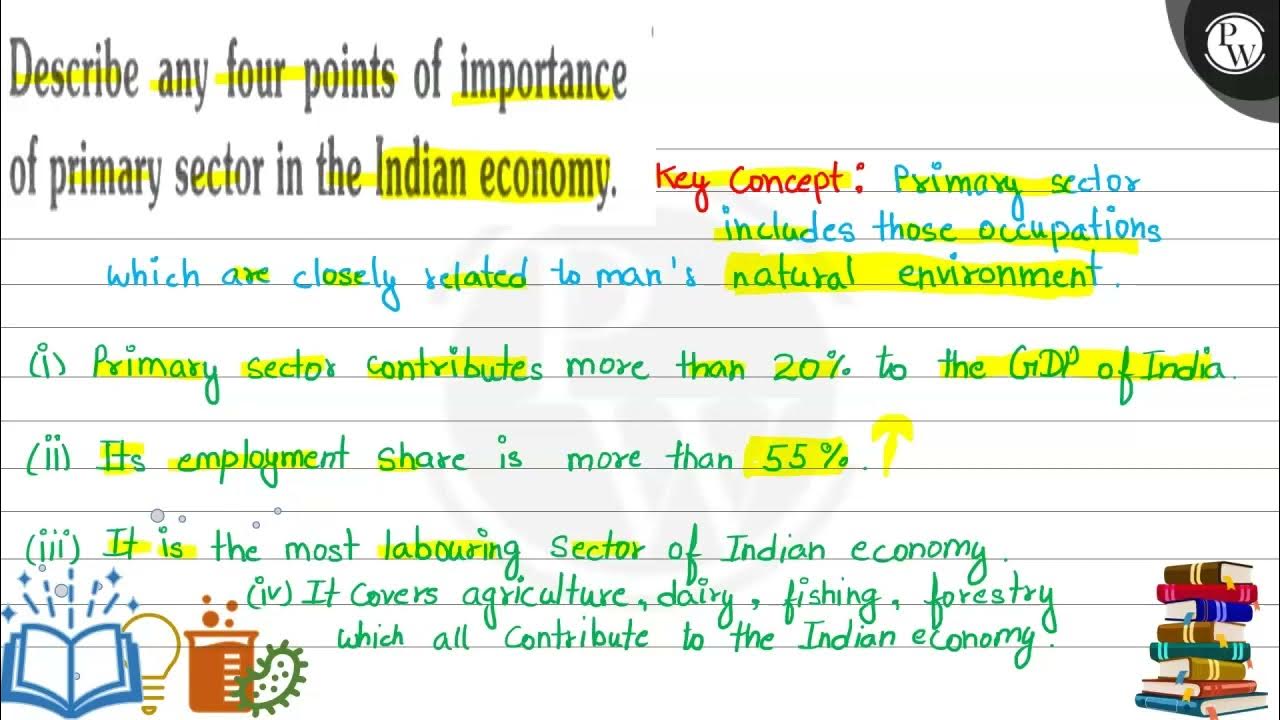 Describe any four points of importance
of primary sector in the Indian economy.
PW
Key Concept: Primary sector
includes those occupations
which are closely related to man's natural environment.
(i) Primary sector contributes more than 20% to the GDP of India.
(ii) Its employment share is more than 55%.↑
(iii) It is the most labouring sector of Indian economy.
(iv) It covers agriculture, dairy, fishing, forestry
which all contribute to the Indian economy.
PW